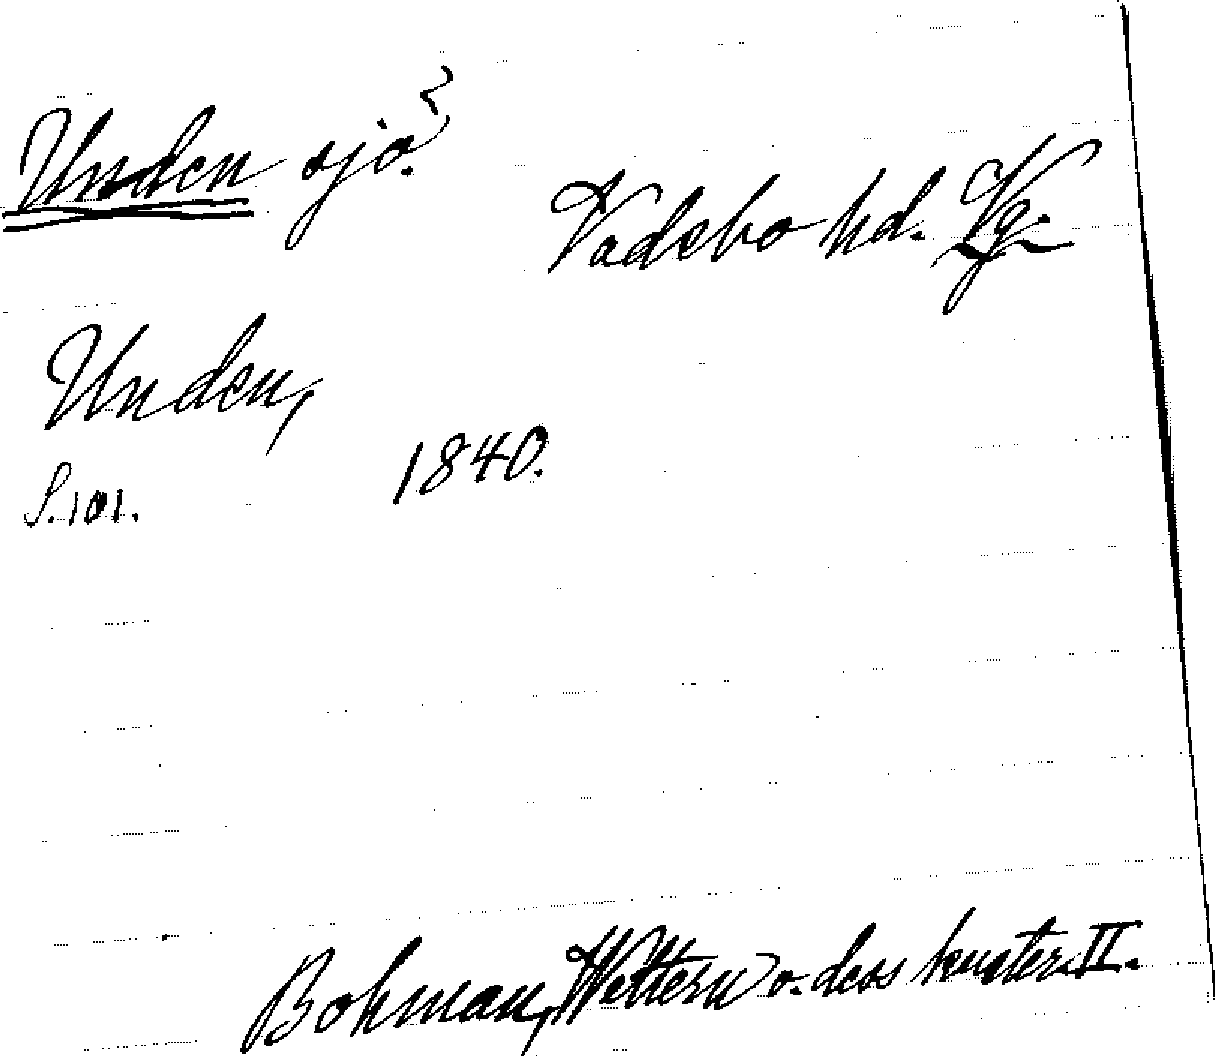 Unden sjö.
Vadsbo hd. Vg.
Unden,
S. 101.
1840.
Bohman, Wettern o. dess kuster. II.